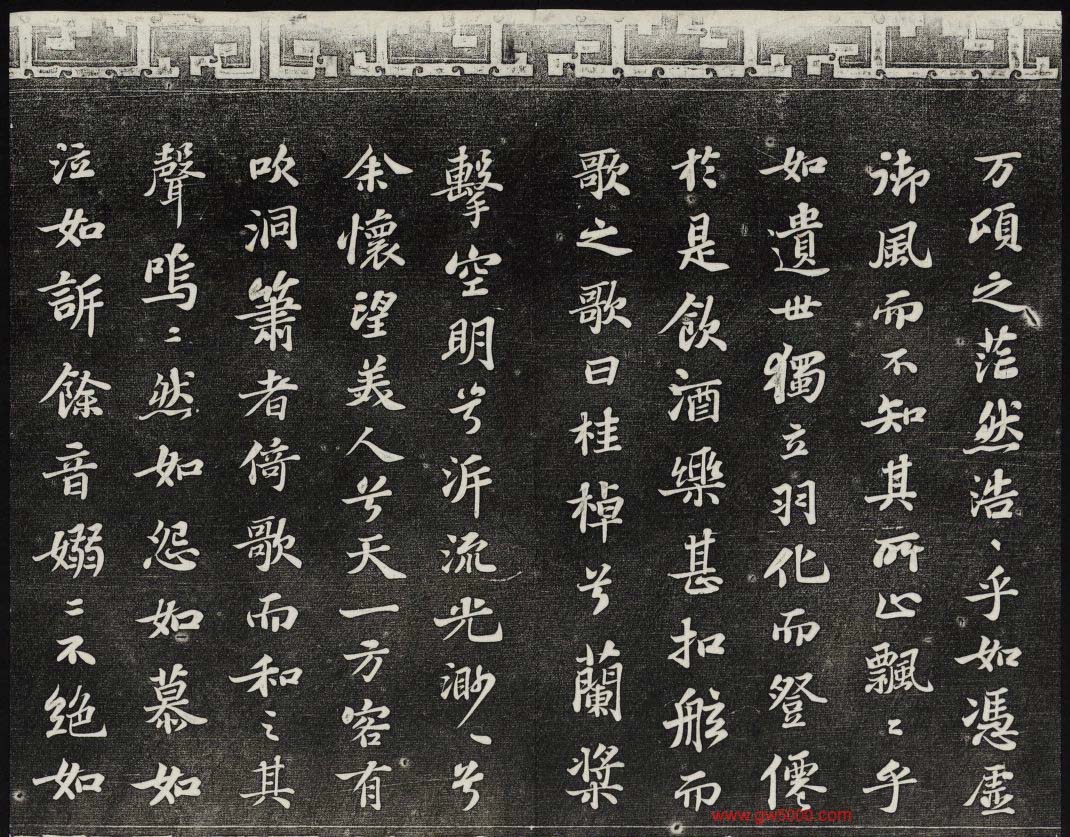 万頃之茫然浩〻乎如憑虛
御風而不知其所止飄〻乎
如遺世獨立羽化而登僊
於是飲酒樂甚扣舷而
歌之歌曰桂棹兮蘭槳
擊空明兮泝流光渺〻兮
余懷望美人兮天一方客有
吹洞簫者倚歌而和之其
聲嗚〻然如怨如慕如
泣如訴餘音嫋〻不絕如
www.gw5000.com